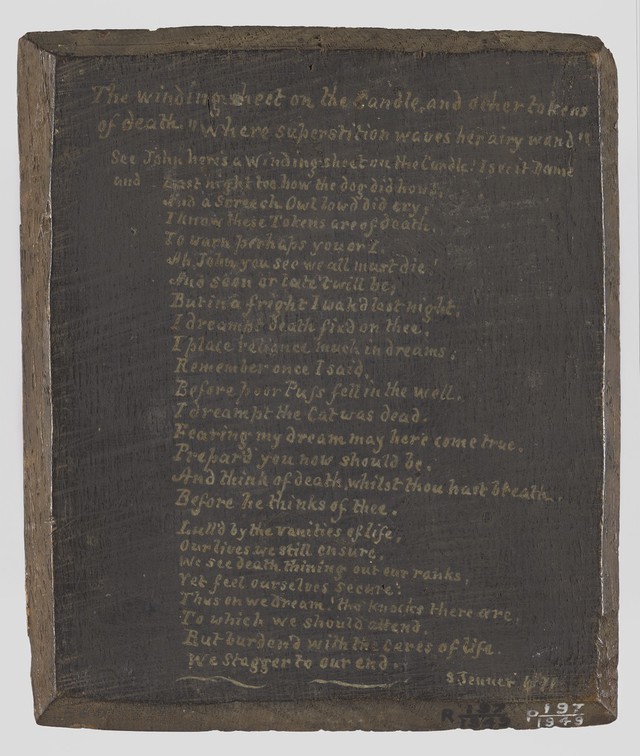 The winding sheet on the Candle, and other tokens
of death "Where superstition waves her airy wand"
See John here's a winding sheet on the Candle! I see it Dame
and Last night too how the dog did howl,
And a Screech Owl lowd did cry,
I know these Tokens are of death,
To warn perhaps you or I.
Ah, John, you see we all must die!
And soon or late 'twill be,
But in a fright I wak'd last night,
I dreampt death fix'd on thee.
I place reliance much in dreams,
Remember once I said,
Before poor Pufs fell in the well,
I dreampt the Cat was dead.
Fearing my dream may here come true,
Prepar'd you now should be,
And think of death, whilst thou hast breath,
Before he thinks of thee.
Lull'd by the vanities of life,
Our lives we still ensure,
We see death thining out our ranks,
Yet feel ourselves secure!
Thus on we dream! tho' knocks there are,
To which we should attend.
But burden'd with the Cares of life.
We Stagger to our end.
S. Jenner
R 197
1949
R 197
1949